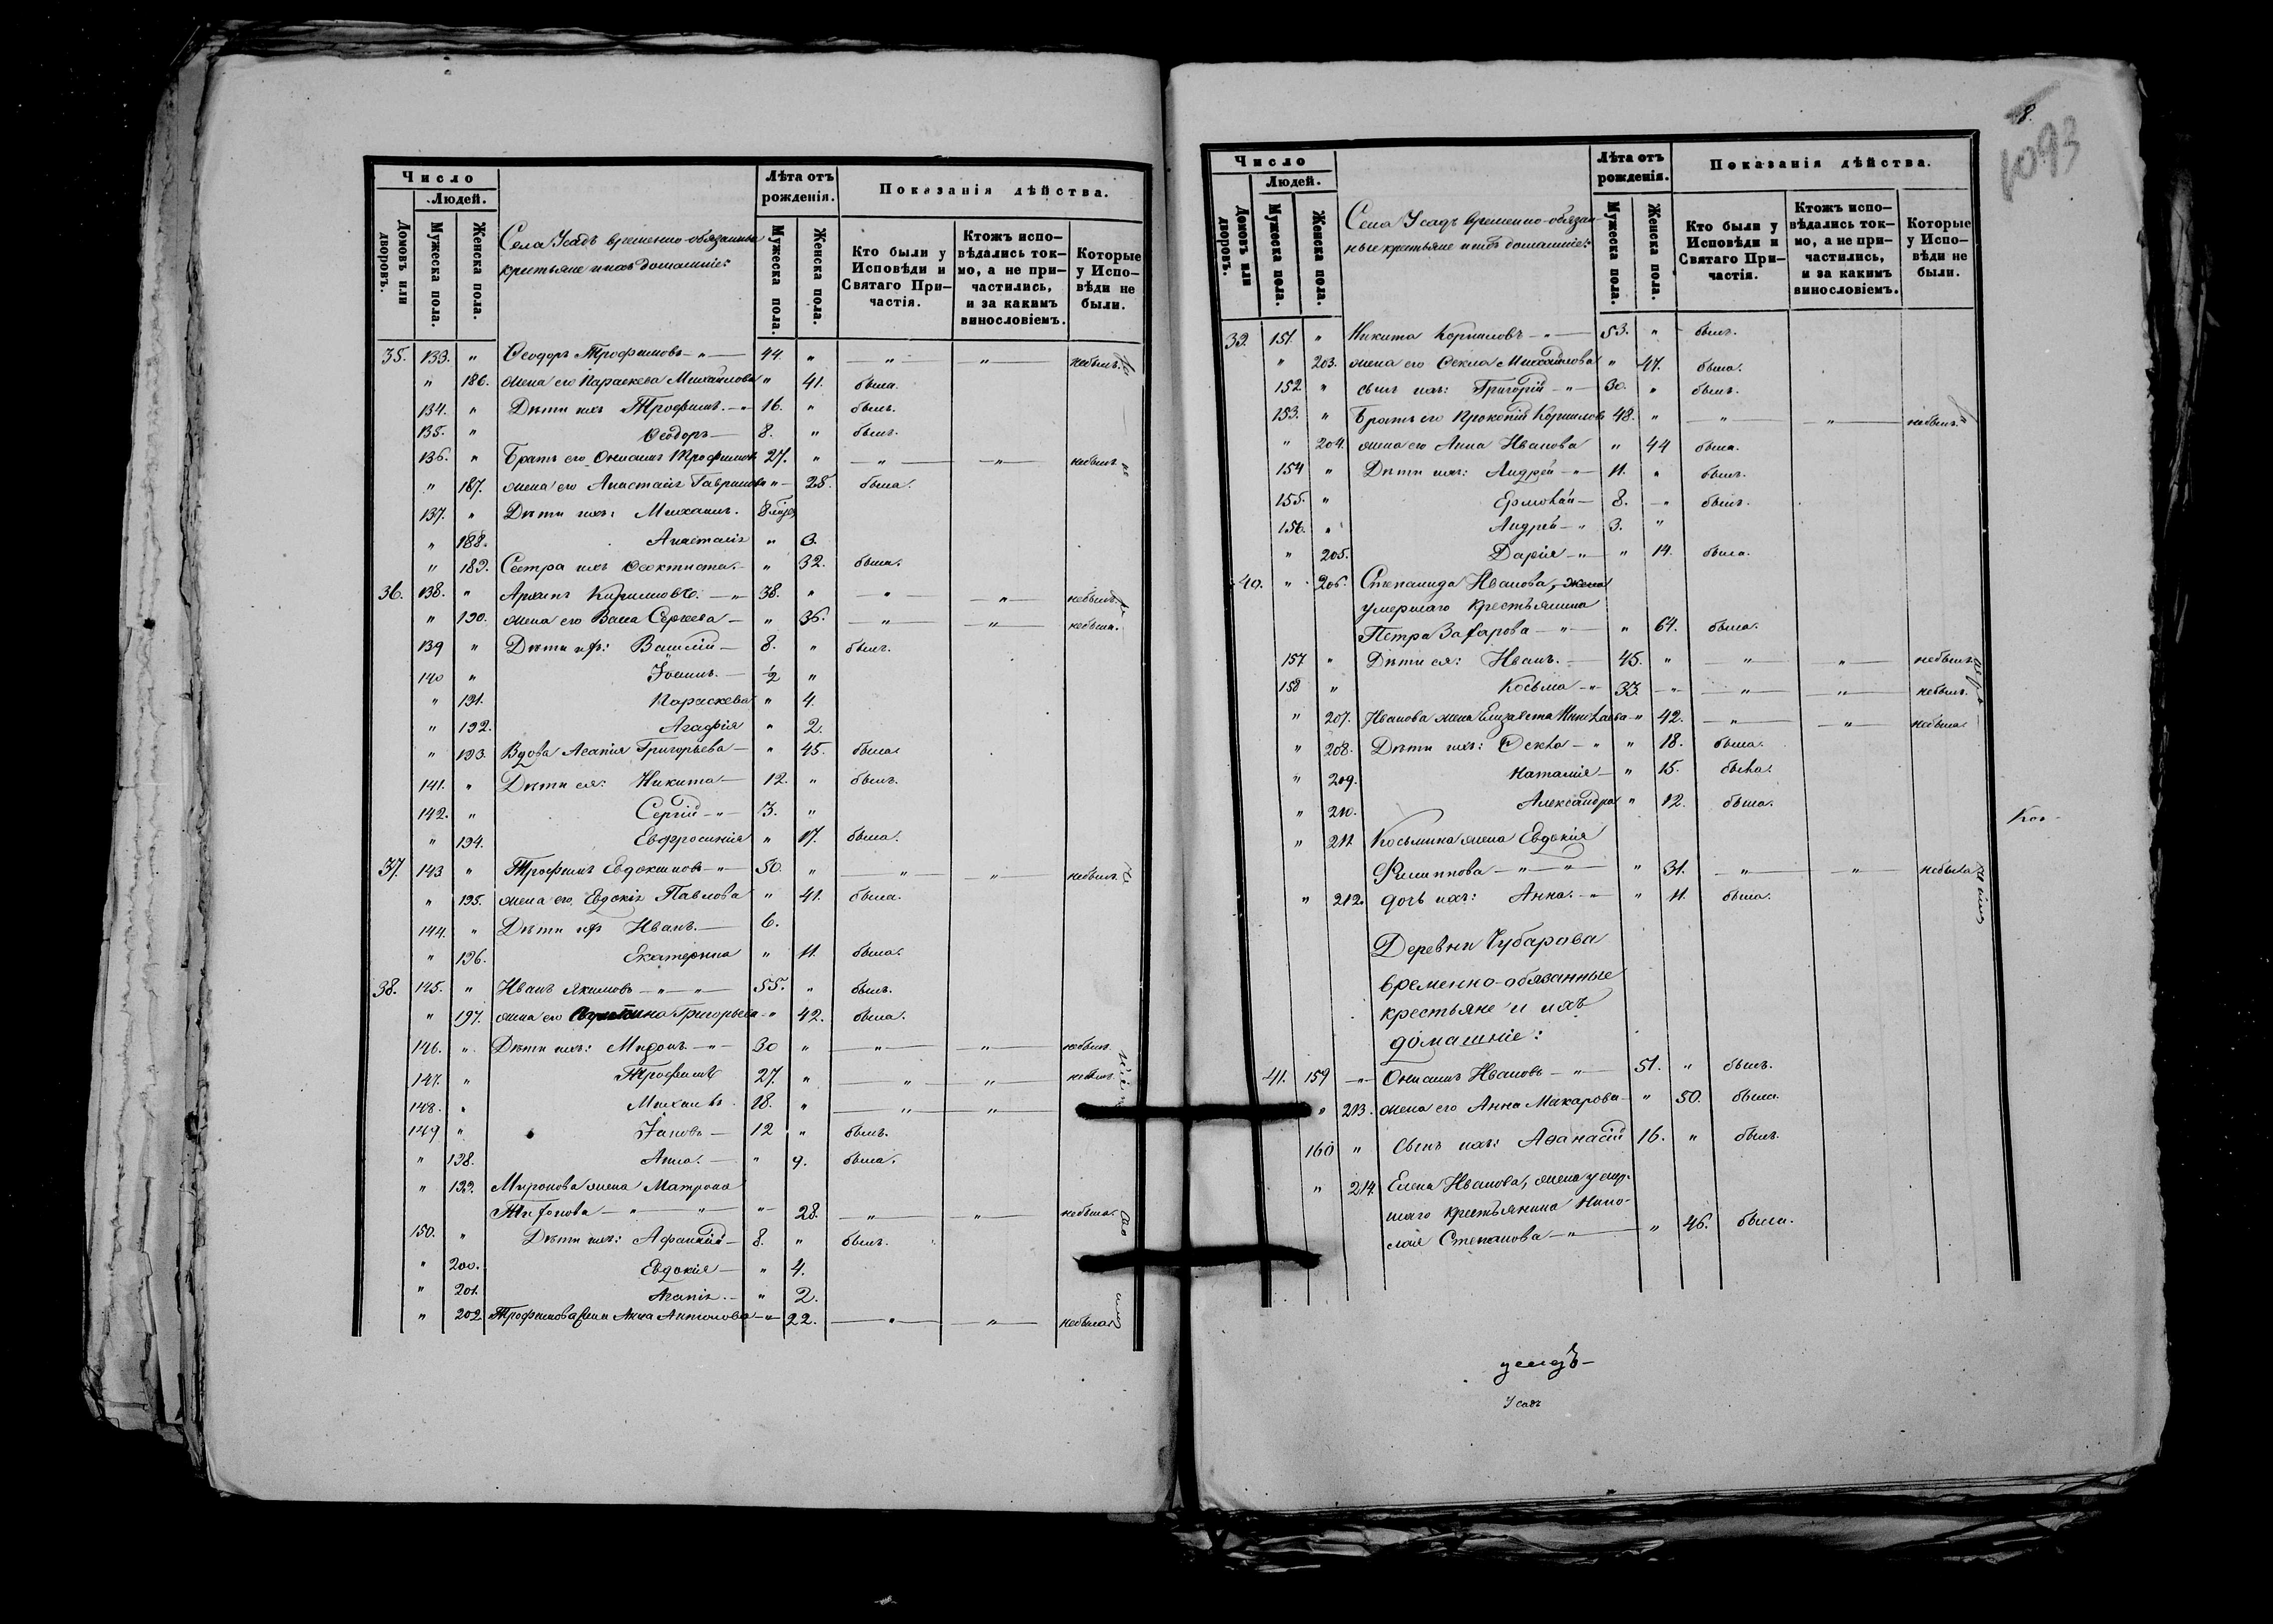 Число
Людей.
Домовъ или дворовъ.
Мужеска пола.
Женска пола.
Села Усадъ временно-обязанные
крестьяне и ихъ домашніе:
Лѣта отъ рожденія.
Мужеска пола.
Женска пола.
Показанія дѣйства.
Кто были у Исповѣди и Святаго Причастія.
Ктожъ исповѣдались токмо, а не причастились, и за какимъ винословіемъ.
Которые у Исповѣди не были.
35. 133. " Ѳеодоръ Трофимовъ - " - 44. " - " - " - небылъ.
" 186. жена его Параскева Михайлова " 41. была.
134. " Дѣти ихъ Трофимъ. - " 16. " былъ.
135. " Ѳеодоръ - 8. " былъ.
136. " Братъ его Онисимъ Трофимовъ 27. " - " - " - небылъ.
" 187. жена его Анастасія Гаврилова " - 28. была.
137. " Дѣти ихъ: Михаилъ. 8
" 188. Анастасія " 3.
" 189. Сестра ихъ Ѳеоктиста. - " 32. была.
36. 138. " Архипъ Кирилловъ. - " 38. " - " - " - небылъ.
" 190. жена его Васса Сергеева - " 36. - " - " - небыла.
139 " Дѣти ихъ: Василій - 8. " былъ.
140 " Іоаннъ. - ½ "
" 191. Параскева " 4.
" 192. Агафія " 2.
" 193. Вдова Агапія Григорьева - " 45. была.
141. " Дѣти ея: Никита - 12. " былъ.
142. " Сергій - " - 3. "
" 194. Евфросинія " 17. была.
37. 143 " Трофимъ Евдокимовъ - " - 50. " - " - " - небылъ.
" 195. жена его Евдокія Павлова " 41. была.
144. " Дѣти ихъ Иванъ. - 6.
" 196. Екатерина " 11. была.
38. 145. " Иванъ Якимовъ - " - " - 55. " былъ.
" 197. жена его Григорьева - " 42. была.
146. " Дѣти ихъ: Миронъ - " - 30 " - " - " - небылъ.
147. " Трофимъ 27. " " - " - небылъ.
148. " Михаилъ 18. " - " - " -
149 " Іаковъ - 12 " былъ.
" 198. Анна. - " 9. была.
" 199. Миронова жена Матрона
Тихонова - " - " - " - 28. - " - " - небыла.
150. " Дѣти ихъ: Афанасій - 8. " былъ.
" 200. Евдокія - " 4.
" 201. Агапія. - " 2.
" 202. Трофимова жена Анна Антонова - " - 22. - " - " - небыла.
8.
1093
Число
Людей.
Домовъ или дворовъ.
Мужеска пола.
Женска пола.
Села Усадъ временно-обязан-
ные крестьяне и ихъ домашніе:
Лѣта отъ рожденія.
Мужеска пола.
Женска пола.
Показанія дѣйства.
Кто были у Исповѣди и Святаго Причастія.
Ктожъ исповѣдались токмо, а не причастились, и за какимъ винословіемъ.
Которые у Исповѣди не были.
39. 151. " Никита Корниловъ - " - 53. " былъ.
" 203. жена его Ѳекла Михайлова " 47. была.
152. " сынъ ихъ: Григорій - " - 30. " былъ.
153. " Братъ его Прокопій Корниловъ 48. " - " - " - небылъ.
" 204. жена его Анна Иванова " 44 была.
154 " Дѣти ихъ: Андрей - " - 11. " былъ.
155. " Ермолай - 8. - " былъ.
156. " Андрей - " 3. "
" 205. Дарія - " - " 14. была.
40. " 206. Степанида Иванова, жена
умершаго крестьянина
Петра Захарова - " - " 64. была.
157 " Дѣти ея: Иванъ. - 45. " - " - " - небылъ.
158 " Косьма - " - 33. - " - " - " - небылъ.
" 207. Иванова жена Елизавета Николаева - " 42. - " - " - небыла.
" 208. Дѣти ихъ: Ѳекла - " " 18. была.
" 209. Наталия - " 15. была.
" 210. Александра " 12. была.
" 211. Косьмина жена Евдокія
Филиппова - " - " - " 31. - " - " - небыла
" 212. дочь ихъ: Анна. - " - " 11. была.
Деревни Чубарова
временно-обязанные
крестьяне и ихъ
домашніе:
41. 159 - " - Онисимъ Ивановъ - " - 51. " былъ.
" 213. жена его Анна Макарова - " 50. была.
160 " Сынъ ихъ: Аѳанасій 16. " былъ.
" 214. Елена Иванова, жена умер-
шаго крестьянина Нико-
лая Степанова - " - " 46. была.
Усадъ